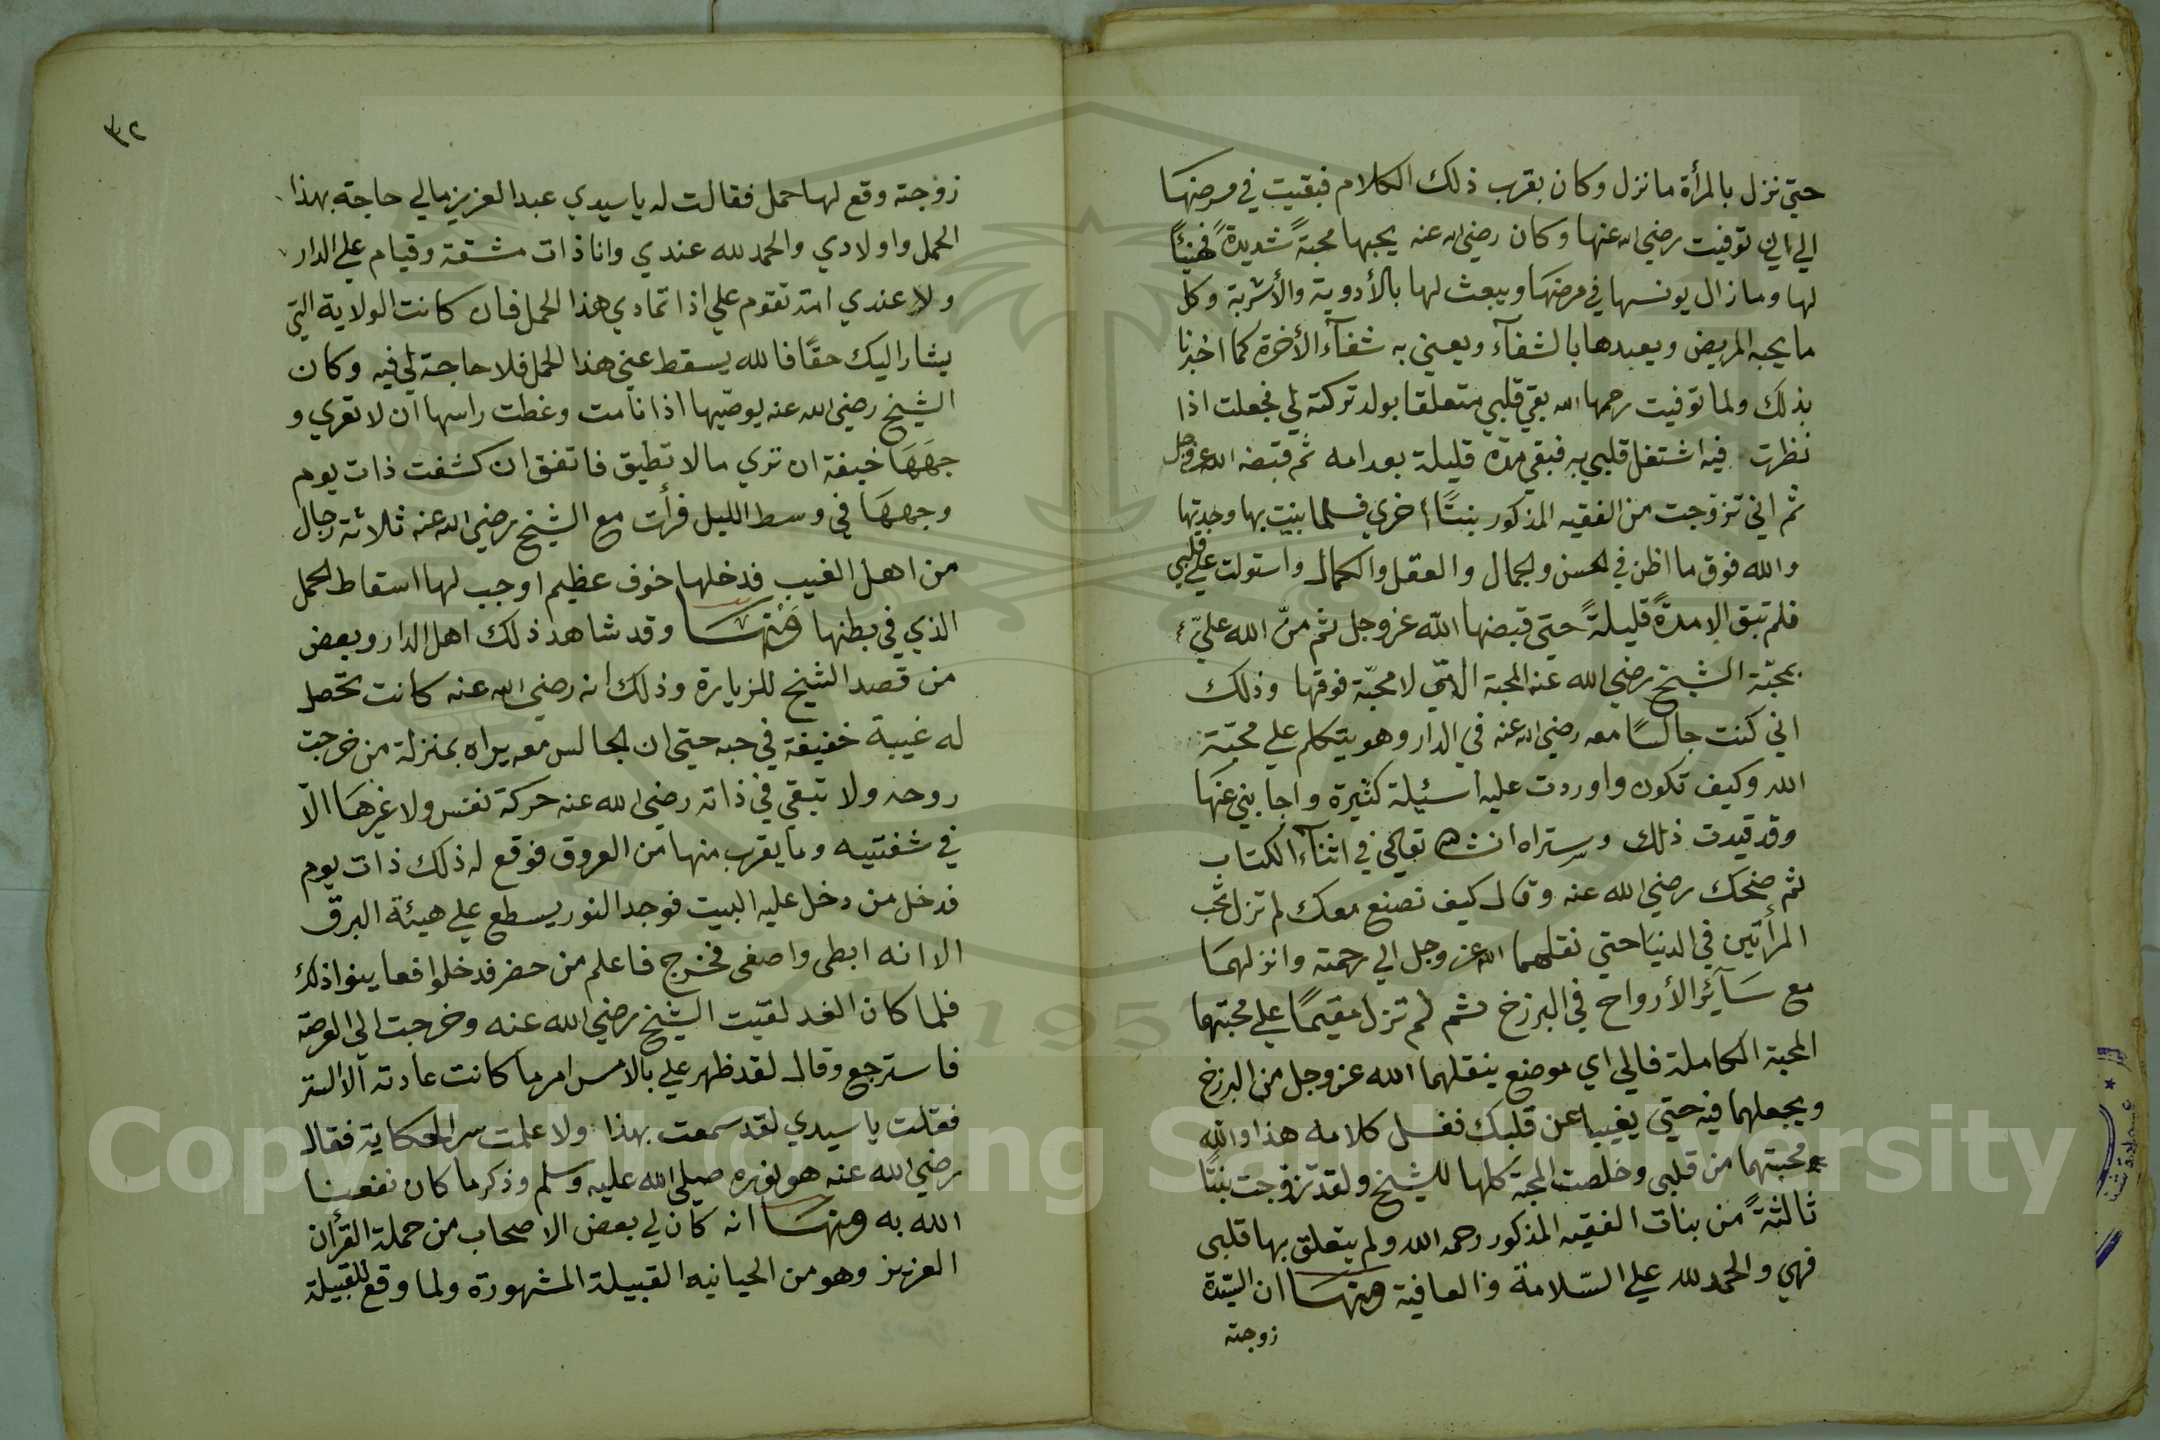 حتي نزل بالمرأة ما نزل وكان بقرب ذلك الكلام فبقيت في مرضها
الي ان توفيت رضي الله عنها وكان رضي الله عنه يحبها محبةً شديدةً فهنيأً
لها وما زال يونسها في مرضها ويبعث لها بالأدوية والأشربة وكل
ما يحبه المريض ويعبدها بالشفآء ويعني به شفآء الأخرة كما اخبرنا
بذلك ولما توفيت رحمها الله بقي قلبي متعلقا بولد تركته لي فجعلت اذا
نظرت فيه اشتغل قلبي به فبقي مدة قليلة بعد امه ثم قبضه الله عز وجل
ثم اني تزوجت من الفقيه المذكور بنتًا أخري فلما بنيت بها وجدتها
والله فوق ما اظن في الحسن والجمال والعقل والكمال واستولت علي قلبي
فلم تبق الا مدةً قليلةً حتي قبضها الله عز وجل ثم منّ الله عليّ
بمحبّة الشيخ رضي الله عنه المحبة التي لا محبّة فوقها وذلك
اني كنت جالسًا معه رضي الله عنه في الدار وهو يتكلم علي محبّة
الله وكيف تكون واوردت عليه أسئيلة كثيرة واجابني عنها
وقد قيدت ذلك وستراه انشا الله تعالي في اثنآء الكتاب
ثم ضحك رضي الله عنه وقال كيف نصنع معك لم تزل تحب
المرأتين في الدنيا حتي نقلهما الله عز وجل الي رحمته وانزلهما
مع سآئر الأرواح في البرزخ ثم لم تزل مقيمًا علي محبتهما
المحبة الكاملة فالي اي موضع ينقلهما الله عز وجل من البرزخ
ويجعلهما فيه حتي يغيبا عن قلبك فغسل كلامه هذا والله
محبتهما من قلبي وخلصت المحبة كلها للشيخ ولقد تزوجت بنتًا
ثالثةً من بنات الفقيه المذكور رحمه الله ولم يتعلق بها قلبي
فهي والحمد لله علي السّلامة والعافية ومنها ان السّيّدة
زوجته
٣٢
زوجته وقع لها حمل فقالت له يا سيدي عبد العزيز مالي حاجة بهذا
الحمل واولادي والحمد لله عندي وانا ذات مشقة وقيام علي الدار
ولا عندي امة تقوم علي اذا تمادي هذا الحمل فان كانت الولاية التي
يشار اليك حقًا فالله يسقط عني هذا الحمل فلا حاجة لي فيه وكان
الشيخ رضي الله عنه يوصّيها اذا نامت وغطت راسها ان لا تعري و
جهها خيفة ان تري ما لا تطيق فاتفق ان كشفت ذات يوم
وجهها في وسط الليل فرأت مع الشيخ رضي الله عنه ثلاثة رجال
من اهل الغيب فدخلها خوف عظيم اوجب لها اسقاط الحمل
الذي في بطنها ومنها وقد شاهد ذلك اهل الدار وبعض
من قصد الشيخ للزيارة وذلك انه رضي الله عنه كانت تحصل
له غيبة خفيفة في حبه حتي ان الجالس معه يراه بمنزلة من خرجت
روحه ولا تبقي في ذاته رضي الله عنه حركة نفس ولا غيرها الّا
في شفتيه وما يقرب منها من العروق فوقع له ذلك ذات يوم
فدخل من دخل عليه البيت فوجد النور يسطع علي هيئة البرق
الا انه ابطي واصفي فخرج فاعلم من حضر فدخلوا فعاينوا ذلك
فلما كان الغد لقيت الشيخ رضي الله عنه وخرجت الي العرصة
فاسترجع وقال لقد ظهر علي بالامس امر ما كانت عادته الا الستر
فقلت يا سيدي لقد سمعت بهذا ولا علمت سر الحكاية فقال
رضي الله عنه هو نوره صلي الله عليه وسلم وذكر ما كان نفعنا
الله به ومنها انه كان لي بعض الاصحاب من حملة القرأن
العزيز وهو من الحيانيه القبيلة المشهورة ولما وقع للقبيلة
Copyright © King Saud University
195